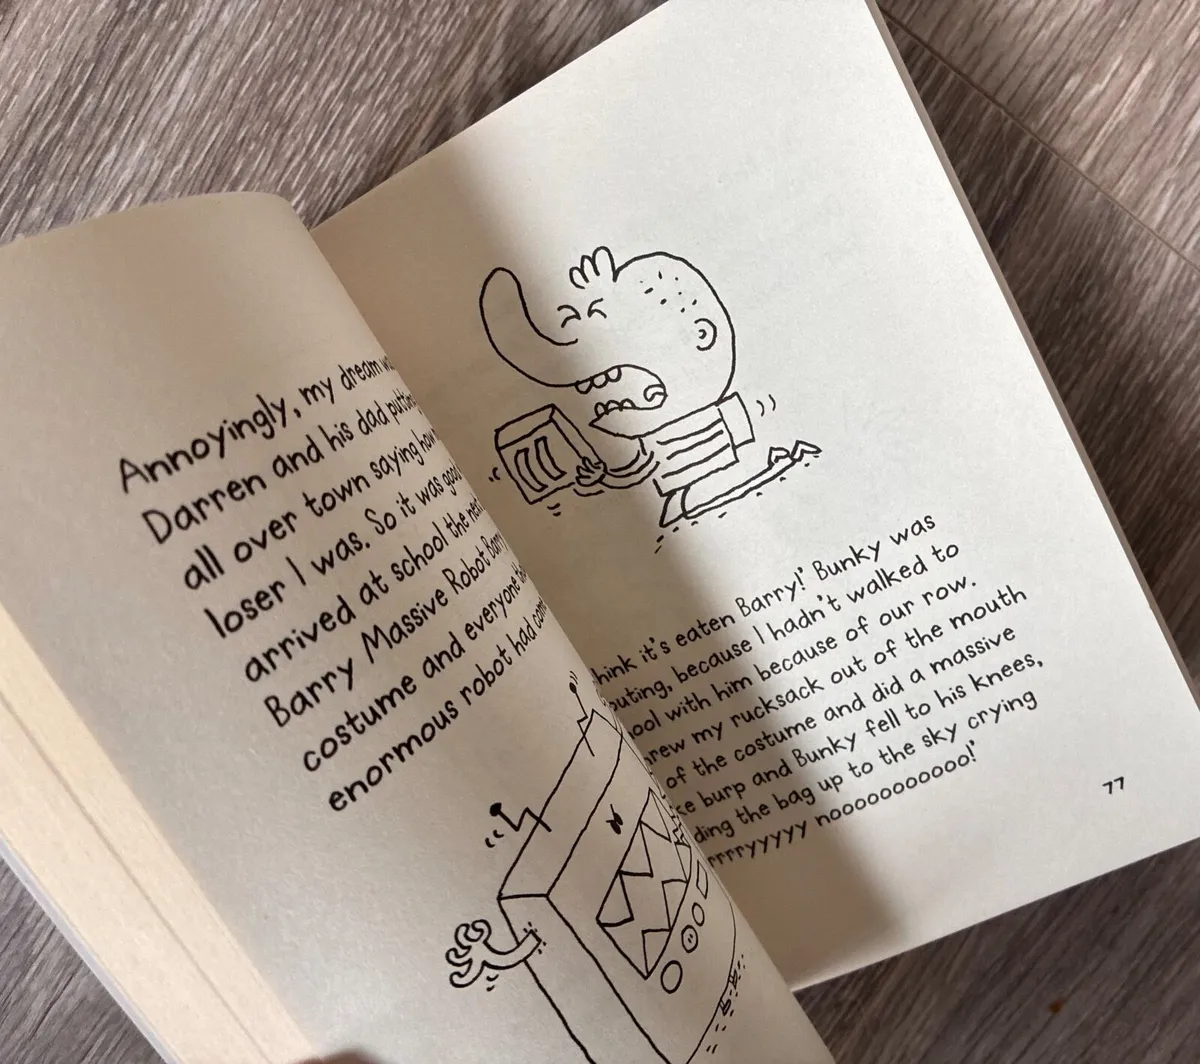 Annoyingly, my dream
Darren and his dad
all over town saying how
loser I was. So it was good
arrived at school the next
Barry Massive Robot Barry
costume and everyone
enormous robot had
it's eaten Barry!' Bunky was
because I hadn't walked to
with him because of our row.
my rucksack out of the mouth
of the costume and did a massive
burp and Bunky fell to his knees,
the bag up to the sky crying
nooooooooooo!'
77